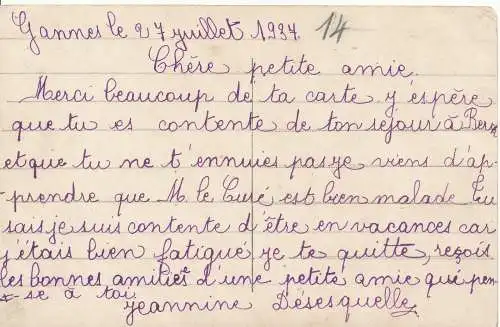 Gannes le 27 juillet 1937. 14
Chère petite amie.
Merci beaucoup de ta carte j'éspère
que tu es contente de ton séjour à
et que tu ne t'ennuies pas je viens d'ap-
-prendre que M. le Curé est bien malade Tu
sais je suis contente d'être en vacances car
j'étais bien fatigué je te quitte, reçois
les bonnes amitiés d'une petite amie qui pen
-se à toi
Jeannine Désesquelle